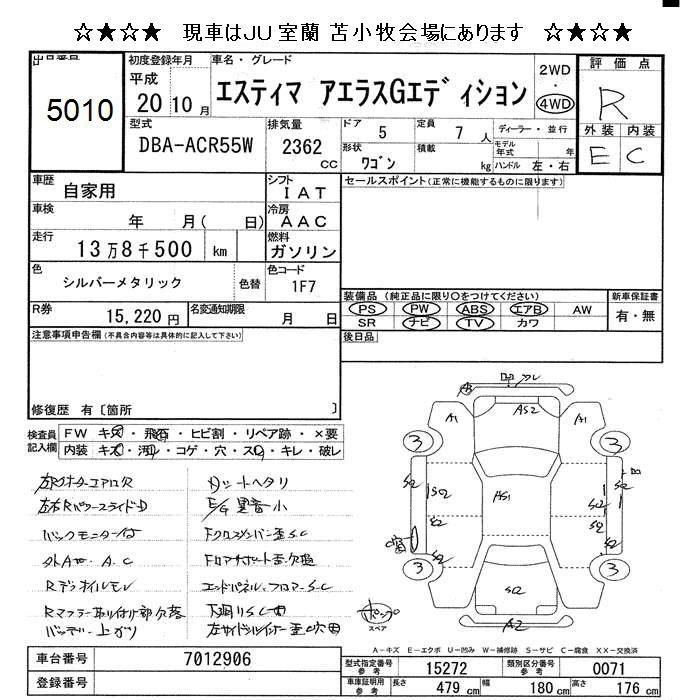 ☆★☆★ 現車はJU室蘭 苫小牧会場にあります ☆★☆★
5010
初度登録年月
平成
20年10月
車名・グレード
エスティマ アエラスGエディション
2WD
・
4WD
評価点
R
外装 内装
E C
型式
DBA-ACR55W
排気量
2362
cc
ドア 5
定員 7人
ディーラー・並行
形状 ワゴン
積載 kg
モデル年式 年
ハンドル 左・右
車歴 自家用
シフト IAT
セールスポイント(正常に機能するものに限ります)
車検 年 月( 日)
冷房 AAC
走行 13万8千500 km
燃料 ガソリン
色 シルバーメタリック 色替
色コード 1F7
R券 15,220円
名変通知期限 月 日
装備品(純正品に限り○をつけてください)
新車保証書
PS PW ABS エアB AW
有・無
SR ナビ TV カワ
注意事項申告欄(不具合内容等は具体的に記入して下さい)
後日品
修復歴 有〔箇所 〕
検査員記入欄
FW キズ・飛石・ヒビ割・リペア跡・×要
内装 キズ・汚れ・コゲ・穴・スレ・キレ・破レ
左右パワースライドD
バックモニター付
シートヘタリ
E/G異音小
外AW、A.C
Rデフオイルモレ
Rマフラー取り付け部欠落
バッテリー上がり
エンドパネル、フロアーS.C
A1
AS2
A1
3
3
S2
S2
S2
AS1
S2
S2
S2
S2
3
3
S2
A2
スペア
A-キズ E-エクボ U-凹み W-補修跡 S-サビ C-腐食 XX-交換済
車台番号 7012906
登録番号
型式指定番号 参考 15272
類別区分番号 参考 0071
車庫証明用 参考 長さ 479cm 幅 180cm 高さ 176cm